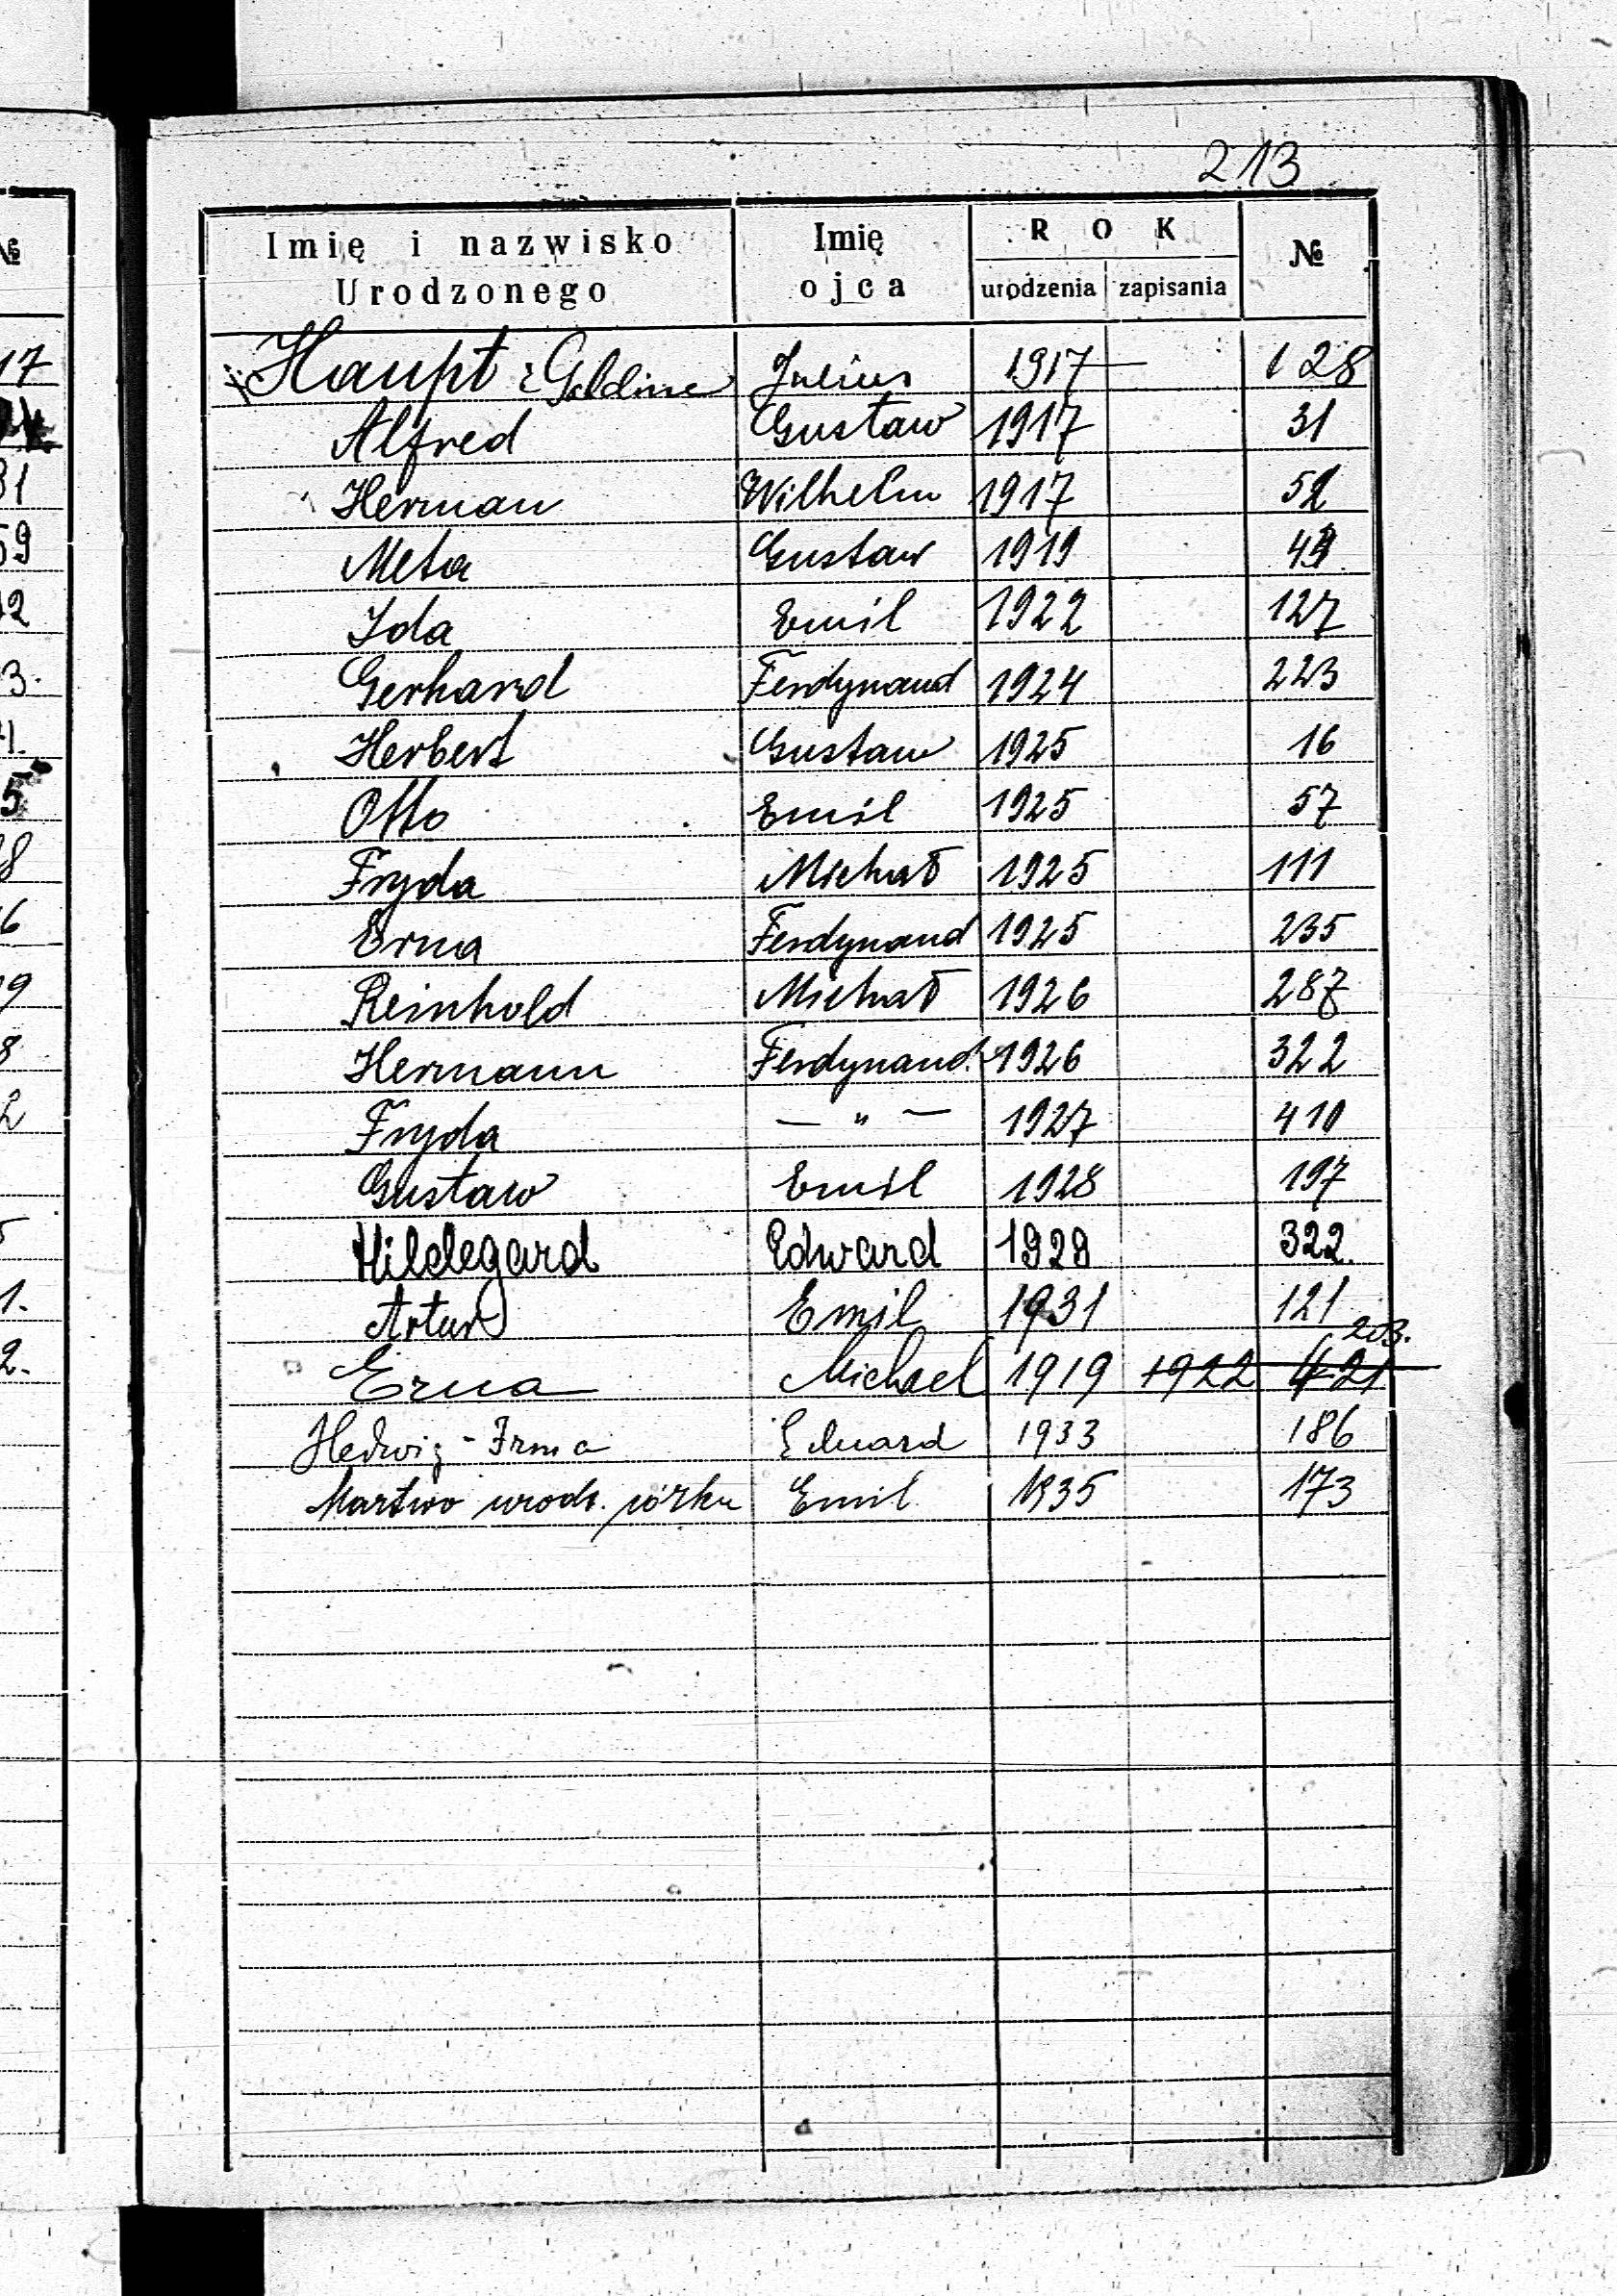 213
Imię i nazwisko Urodzonego Imię ojca ROK urodzenia zapisania №
Haupt Goldine Julius 1917 128
Alfred Gustaw 1917 31
Herman Wilhelm 1917 52
Meta Gustaw 1919
Ida Emil 1922 127
Gerhard Ferdynand 1924 223
Herbert Gustaw 1925 16
Otto Emil 1925 57
Fryda Michał 1925 111
Erna Ferdynand 1925 235
Reinhold Michał 1926 287
Hermann Ferdynand. 1926 322
Fryda — " — 1927 410
Gustaw Emil 1928 197
Hildegard Edward 1928 322.
Artur Emil 1931 121
203.
Erna Michael 1919 1922 421
Hedwig - Irma Eduard 1933 186
Martwo urodz. córka Emil 1935 173
№
17
81
59
12
3.